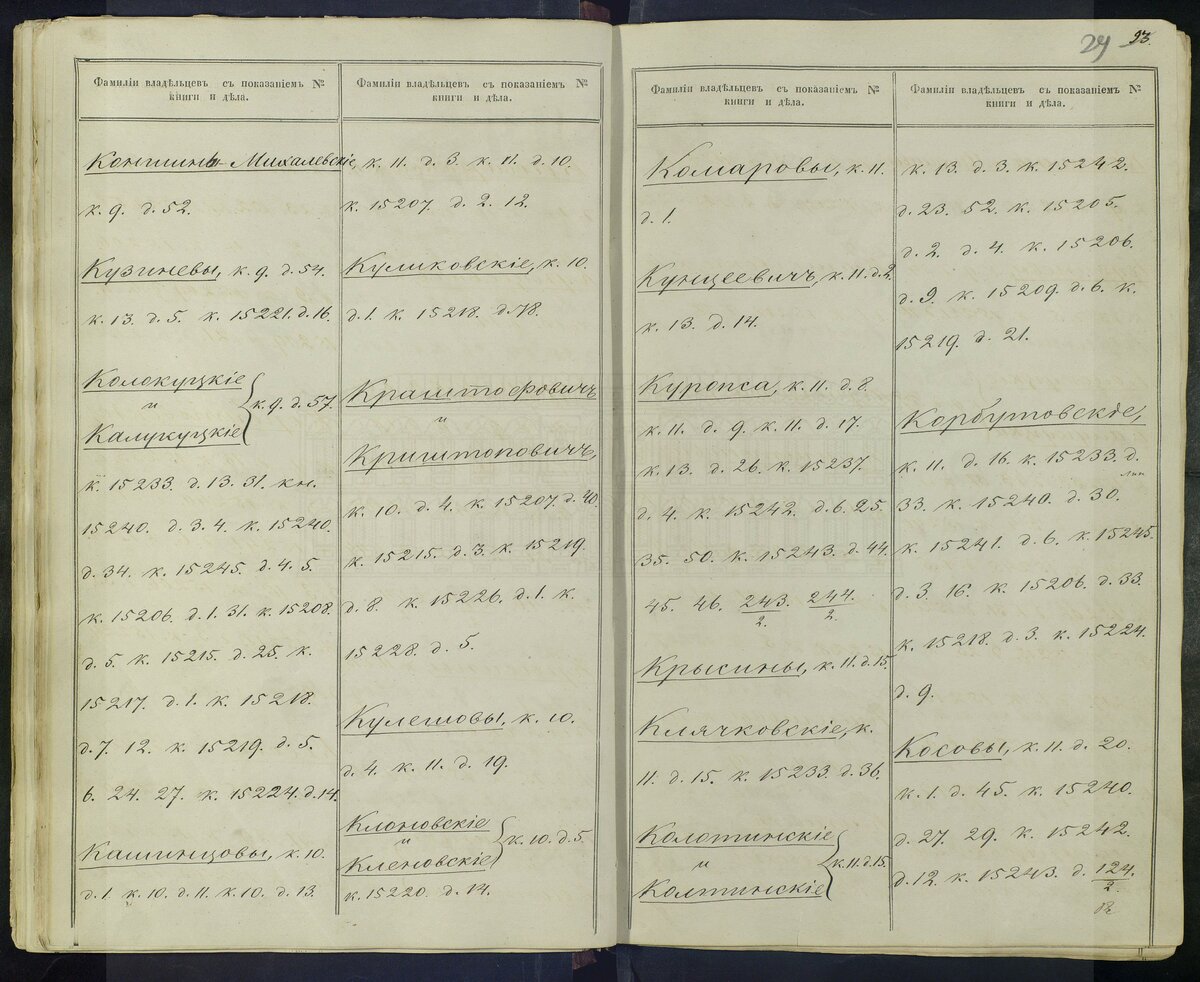 Фамиліи владѣльцевъ съ показаніемъ №
книги и дѣла.
Коншинъ-Михалевскіе,
к. 9. д. 52.
Кузиневы, к. 9. д. 54.
к. 13. д. 5. к. 15221. д. 16.
Колокуцкіе
и
Калукуцкіе
к. 9. д. 57.
к. 15233. д. 13. 31. кн.
15240. д. 3. 4. к. 15240.
д. 34. к. 15245. д. 4. 5.
к. 15206. д. 1. 31. к. 15208.
д. 5. к. 15215. д. 25. к.
15217. д. 1. к. 15218.
д. 7. 12. к. 15219. д. 5.
6. 24. 27. к. 15224. д. 14.
Кашинцовы, к. 10.
д. 1. к. 10. д. 11. к. 10. д. 13.
Фамиліи владѣльцевъ съ показаніемъ №
книги и дѣла.
к. 11. д. 3. к. 11. д. 10.
к. 15207. д. 2. 12.
Куликовскіе, к. 10.
д. 1. к. 15218. д. 18.
Краштофовичъ
и
Криштоповичъ,
к. 10. д. 4. к. 15207. д. 40.
к. 15215. д. 3. к. 15219.
д. 8. к. 15226. д. 1. к.
15228. д. 5.
Кулешовы, к. 10.
д. 4. к. 11. д. 19.
Клоновскіе
и
Кленовскіе
к. 10. д. 5.
к. 15220. д. 14.
24 23.
Фамиліи владѣльцевъ съ показаніемъ №
книги и дѣла.
Комаровы, к. 11.
д. 1.
Кунцеевичъ, к. 11. д. 2.
к. 13. д. 14.
Куропса, к. 11. д. 8.
к. 11. д. 9. к. 11. д. 17.
к. 13. д. 26. к. 15237.
д. 4. к. 15242. д. 6. 25.
35. 50. к. 15243. д. 44.
45. 46. 243. 244.
2. 2.
Крысины, к. 11. д. 15.
Клячковскіе, к.
11. д. 15. к. 15233. д. 36.
Колотинскіе
и
Колтинскіе
к. 11. д. 15.
Фамиліи владѣльцевъ съ показаніемъ №
книги и дѣла.
к. 13. д. 3. к. 15242.
д. 23. 52. к. 15205.
д. 2. д. 4. к. 15206.
д. 9. к. 15209. д. 6. к.
15219. д. 21.
Корбутовскіе,
к. 11. д. 16. к. 15233. д.
33. к. 15240. д. 30.
к. 15241. д. 6. к. 15245.
д. 3. 16. к. 15206. д. 33.
к. 15218. д. 3. к. 15224.
д. 9.
Косовы, к. 11. д. 20.
к. 1. д. 45. к. 15240.
д. 27. 29. к. 15242.
д. 12. к. 15243. д. 124.
2.